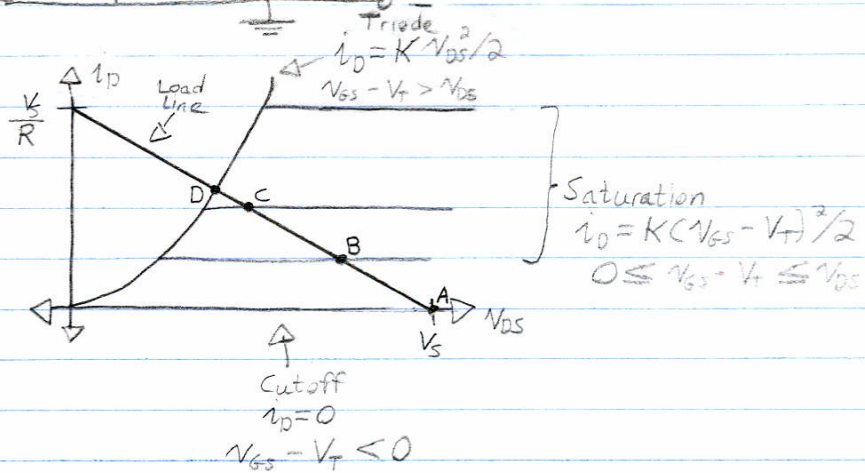 Triode
i_D = K v_DS²/2
v_GS - V_T > v_DS
i_D
Load
Line
V_S
R
D
C
B
A
Saturation
i_D = K(v_GS - V_T)²/2
0 ≤ v_GS - V_T ≤ v_DS
v_DS
V_S
Cutoff
i_D = 0
v_GS - V_T < 0